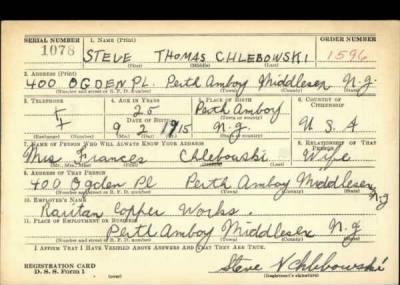 SERIAL NUMBER 1. NAME (Print) ORDER NUMBER
1078 STEVE THOMAS CHLEBOWSKI 1596
(First) (Middle) (Last)
2. ADDRESS (Print)
400 OGDEN PL. Perth Amboy Middlesex N.J.
(Number and street or R. F. D. number) (Town) (County) (State)
3. TELEPHONE 4. AGE IN YEARS 5. PLACE OF BIRTH 6. COUNTRY OF CITIZENSHIP
25 Perth Amboy
DATE OF BIRTH (Town or county)
9 2 1915 N.J. U.S.A
(Exchange) (Number) (Mo.) (Day) (Yr.) (State or country)
7. NAME OF PERSON WHO WILL ALWAYS KNOW YOUR ADDRESS 8. RELATIONSHIP OF THAT PERSON
Mrs Frances Chlebowski Wife
(Mr., Mrs., Miss) (First) (Middle) (Last)
9. ADDRESS OF THAT PERSON
400 Ogden Pl Perth Amboy Middlesex N.J
(Number and street or R. F. D. number) (Town) (County) (State)
10. EMPLOYER'S NAME
Raritan Copper Works.
11. PLACE OF EMPLOYMENT OR BUSINESS
Perth Amboy Middlesex N.J
(Number and street or R. F. D. number) (Town) (County) (State)
I AFFIRM THAT I HAVE VERIFIED ABOVE ANSWERS AND THAT THEY ARE TRUE.
REGISTRATION CARD
D. S. S. Form 1 Steve Chlebowski
(Registrant's signature)